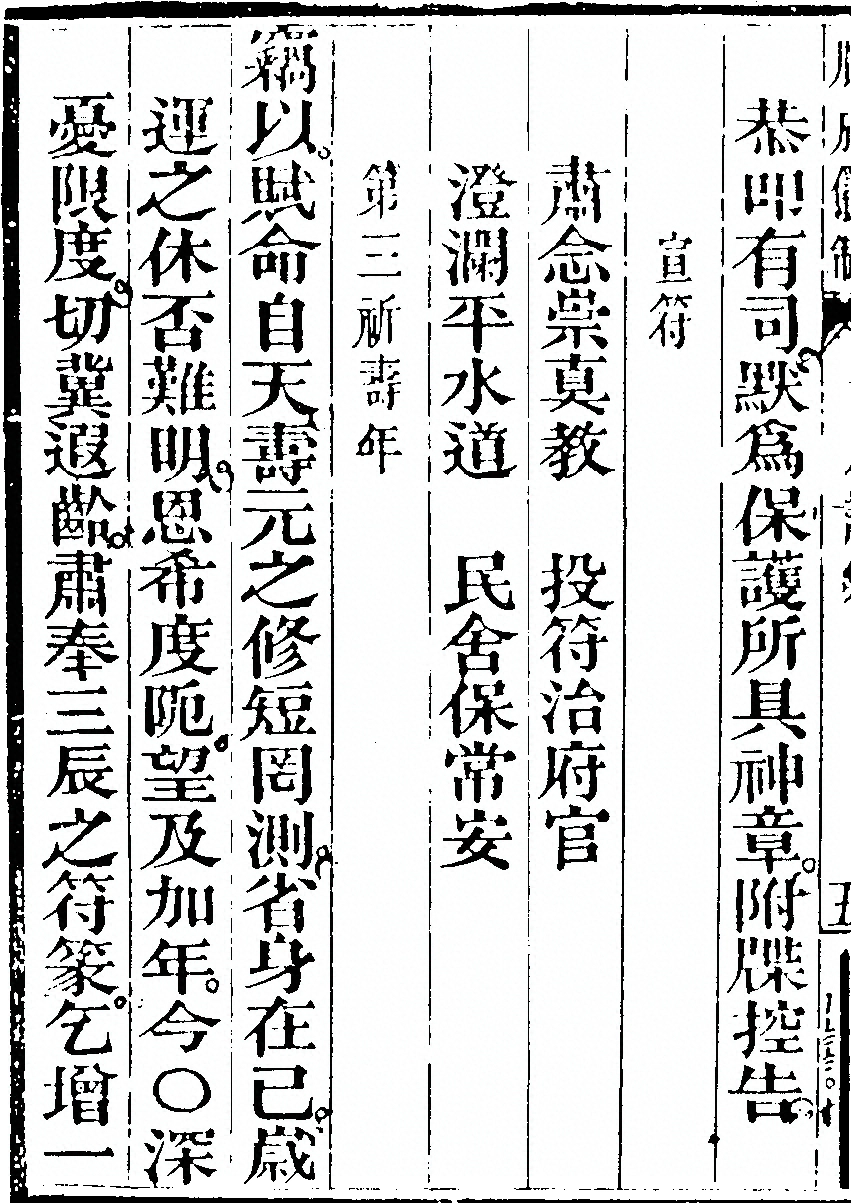 恭叩有司默爲保護所具神章附牒控告
宣符
肅念崇真教　投符治府官
澄瀾平水道　民舍保常安
第三祈壽年
竊以賦命自天壽元之修短罔測省身在己歲
運之休否難明恩希度阨望及加年今○深
憂限度切冀遐齡肅奉三辰之符篆乞增一